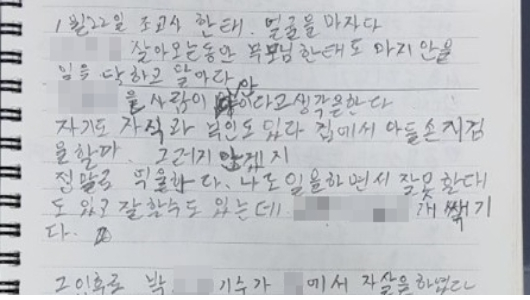 1월22일 조교사 한태. 얼굴을 마자다
살아오는동안 부모님한태도 마지안을
일을 당하고 말아다
을 사람이 안이다고생각을한다
자기도 자식과 부인도 있다 집에서 아들손지검
을할까. 그러지 안겠지
정말로 억울하다. 나도일을하면서 잘못할대
도 있고 잘할수도 있는데. 개쌕기
다.
그일후로 박 기수가 에서 자살을하였다